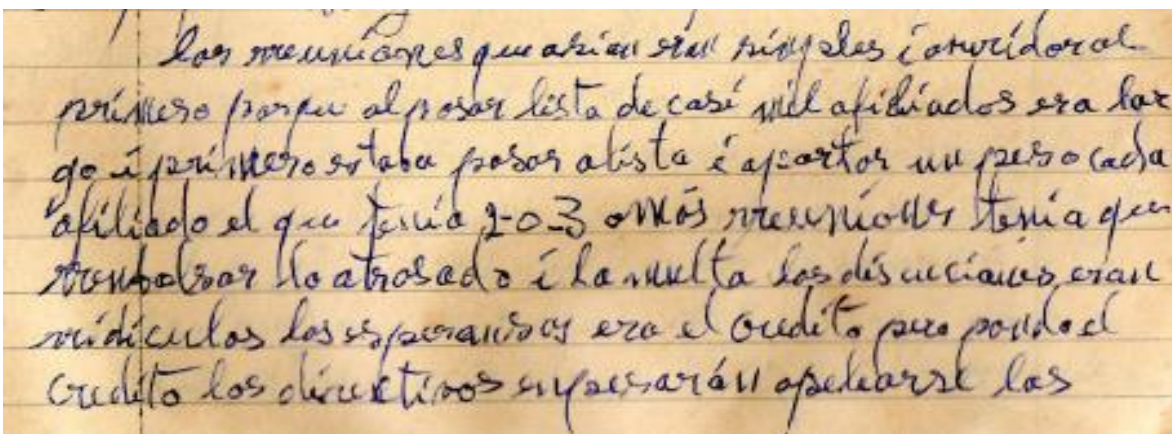 las rreuniones que asian eran simples i anrridoral
primero porqu al pasar lista de casi mil afiliados era lar
go i primero estaba pasar alista é apartar un peso cada
afiliado el que tenia 2-0-3 omás rreuniones tenia que
rrembolsar lo atrasado i la multa las discuciones eran
rridiculas las esperansas era el credito pero cuando el
credito los directivos enpesarán apeliarse las